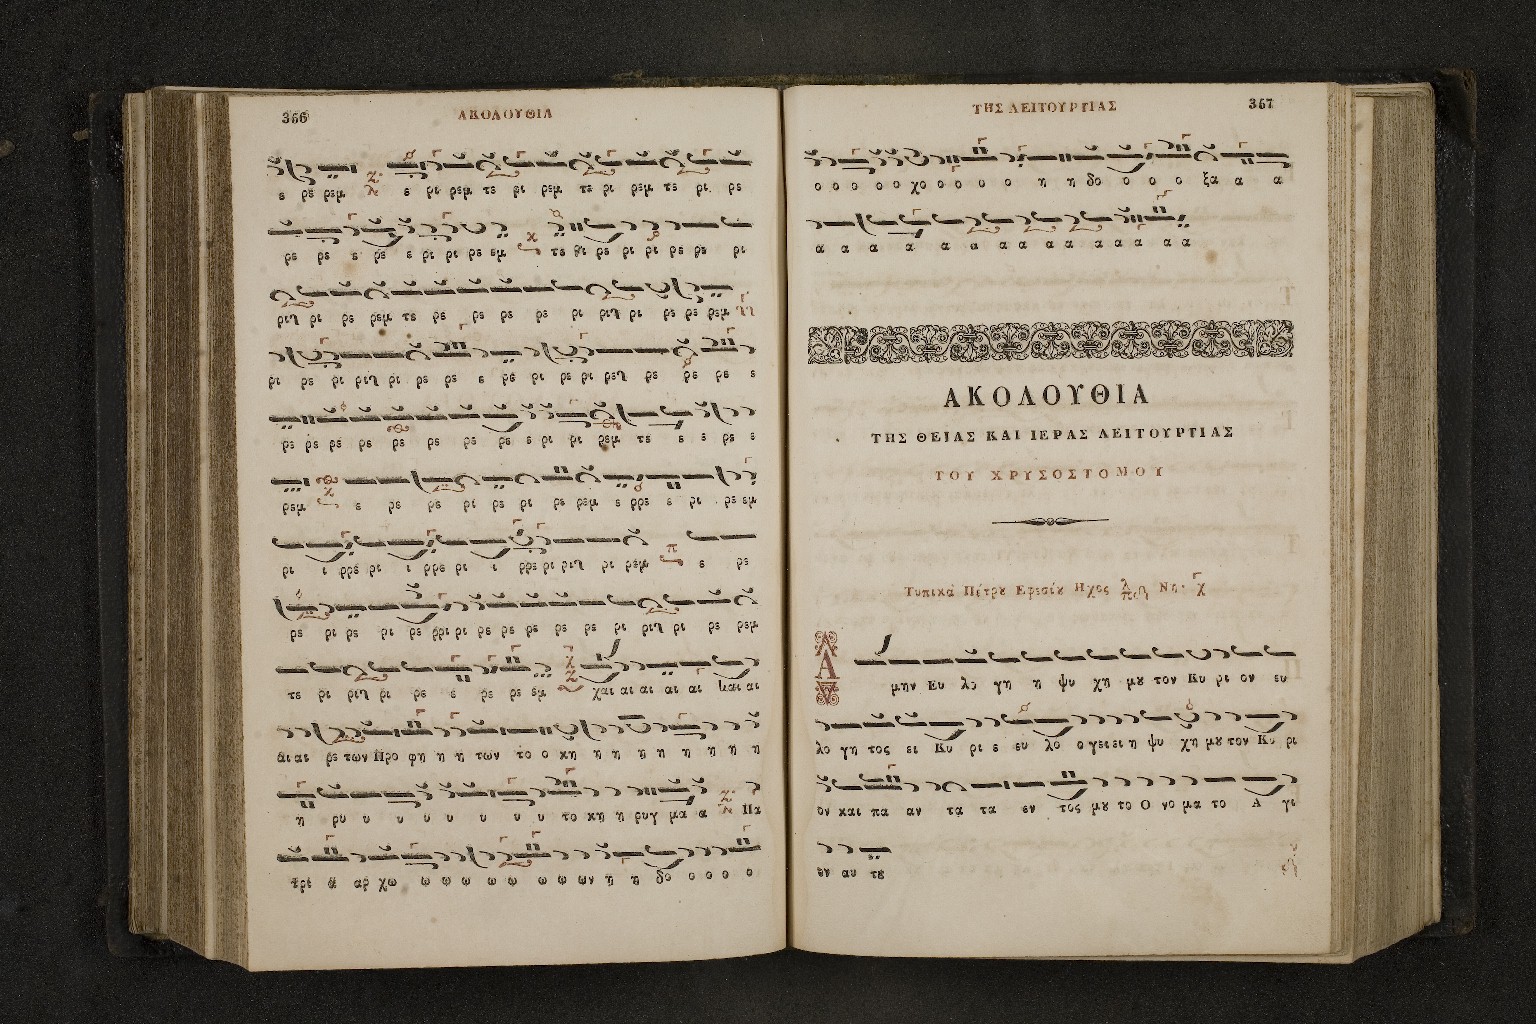 366 ΑΚΟΛΟΥΘΙΑ
ε ρε ρεμ ε ρι ρεμ τε ρι ρεμ τε ρι ρεμ τε ρι ρε
ρε ρε ε ρε ε ρι ρι ρε εμ τε ρι ρε ρι ρι ρε ρε ρι
ριλ ρι ρε ρεμ τε ρε ρε ρε ρε ρι ριλ ρι ρε ρε ρεμ
ρι ρε ρι ριλ ρι ρε ρε ε ρε ρι ρε ρι ρελ ρε ρε ρε ε
ρε ρε ρε ρε ρε ρε ρε ρε ε ρι ρι ρεμ τε ε ε ρε ε
ρεμ ε ρε ρε ρι ρε ρι ρε ρεμ ε ρρε ε ρι ρε εμ
ρι ι ρρε ρι ι ρρε ρι ι ρρε ρι ριλ ρι ρεμ ε ρε
ρε ρι ρε ρι ρε ρρι ρι ρε ρε ρε ρε ρε ρι ριλ ρι ρε ρεμ
τε ρι ριλ ρι ρε ε ρε ρε εμ χαι αι αι αι αι μαι αι
αι αι ρε των Προ φη η η των το ο κη η η η η η η η η
η ρυ υ υ υ υ υ υ υ το κη η ρυγ μα α Πα
τρι α αρ χω ω ω ω ω ω ω ω ων η η δο ο ο ο ο
ΤΗΣ ΛΕΙΤΟΥΡΓΙΑΣ 367
ο ο ο ο ο χο ο ο ο ο η η δο ο ο ο ξα α α
α α α α α α α α α α α α α
ΑΚΟΛΟΥΘΙΑ
ΤΗΣ ΘΕΙΑΣ ΚΑΙ ΙΕΡΑΣ ΛΕΙΤΟΥΡΓΙΑΣ
ΤΟΥ ΧΡΥΣΟΣΤΟΜΟΥ
Τυπικὰ Πέτρου Εφεσίου Ηχος Νη
Α μην Ευ λο γη η ψυ χη μου τον Κυ ρι ον ευ
λο γη τος ει Κυ ρι ε ευ λο ο γει ει η ψυ χη μου τον Κυ ρι
ον και πα αν τα τα εν τος μου το Ο νο μα το Α γι
ον αυ του